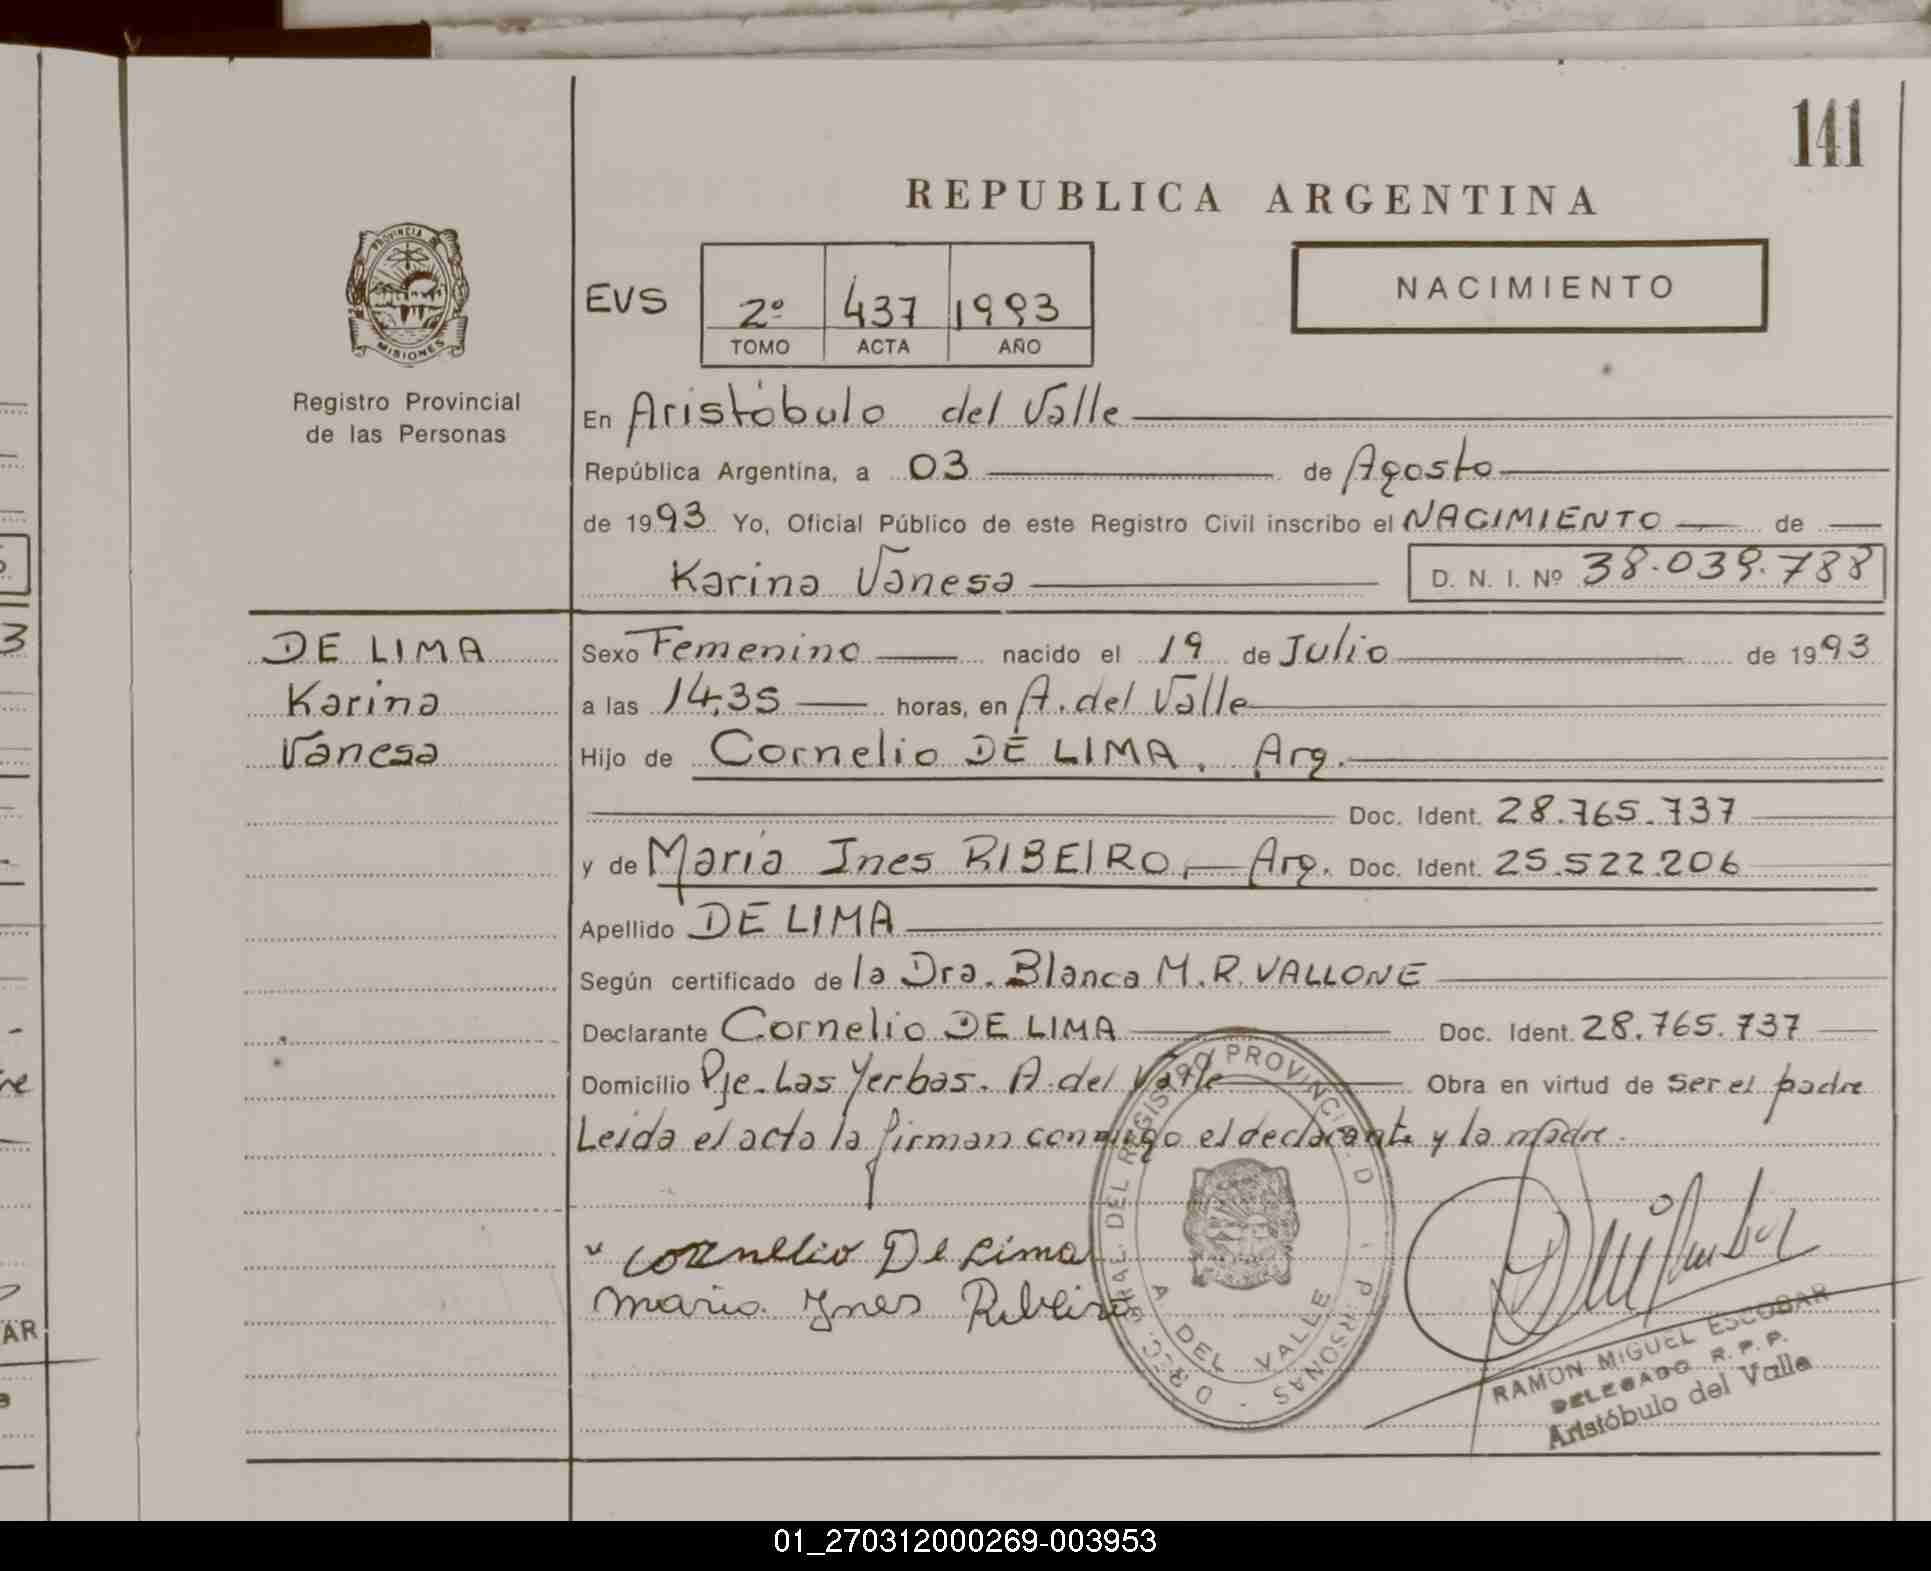 141
REPUBLICA ARGENTINA
PROVINCIA DE
MISIONES
Registro Provincial
de las Personas
EVS
2º 437 1993
TOMO ACTA AÑO
NACIMIENTO
En Aristóbulo del Valle
República Argentina, a 03 de Agosto
de 1993 Yo, Oficial Público de este Registro Civil inscribo el NACIMIENTO de
Karina Vanesa D. N. I. Nº 38.039.788
DE LIMA
Karina
Vanesa
Sexo Femenino nacido el 19 de Julio de 1993
a las 14,35 horas, en A. del Valle
Hijo de Cornelio DE LIMA, Arg.
Doc. Ident. 28.765.737
y de María Ines RIBEIRO, Arg. Doc. Ident. 25.522.206
Apellido DE LIMA
Según certificado de la Dra. Blanca M.R. VALLONE
Declarante Cornelio DE LIMA Doc. Ident. 28.765.737
Domicilio Pje. Las Yerbas. A. del Valle Obra en virtud de ser el padre
Leida el acta la firman conmigo el declarante y la madre.
cornelio De Lima
maria Ynes Ribeiro
A DEL VALLE
RAMON MIGUEL ESCOBAR
DELEGADO R. P. P.
Aristóbulo del Valle
01_270312000269-003953